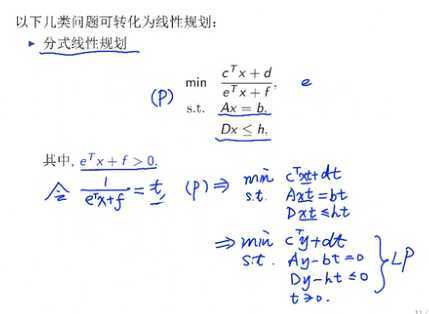 以下几类问题可转化为线性规划:
▶ 分式线性规划
(P) min (cᵀx + d)/(eᵀx + f), e
s.t. Ax = b.
Dx ≤ h.
其中, eᵀx + f > 0.
令 1/(eᵀx+f) = t, (P) ⇒ min cᵀxt+dt
s.t. Axt = bt
Dxt ≤ ht
⇒ min cᵀy+dt
s.t. Ay-bt=0
Dy-ht ≤ 0
t>0.
} LP